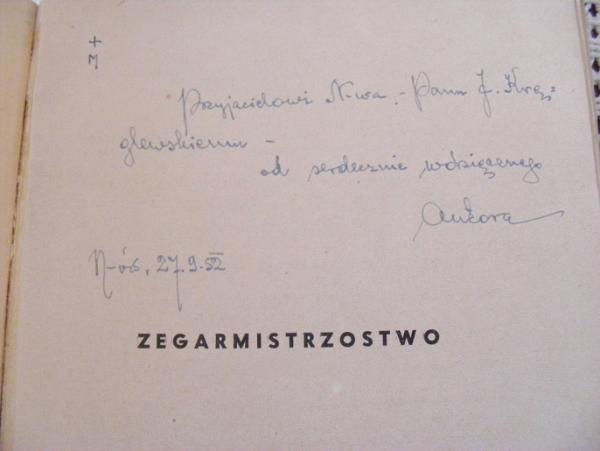 +
M
Przyjacielowi N-wa - Panu J. Krę=
glewskiemu -
od serdecznie wdzięcznego
Autora
N-ów, 27.9.52
ZEGARMISTRZOSTWO